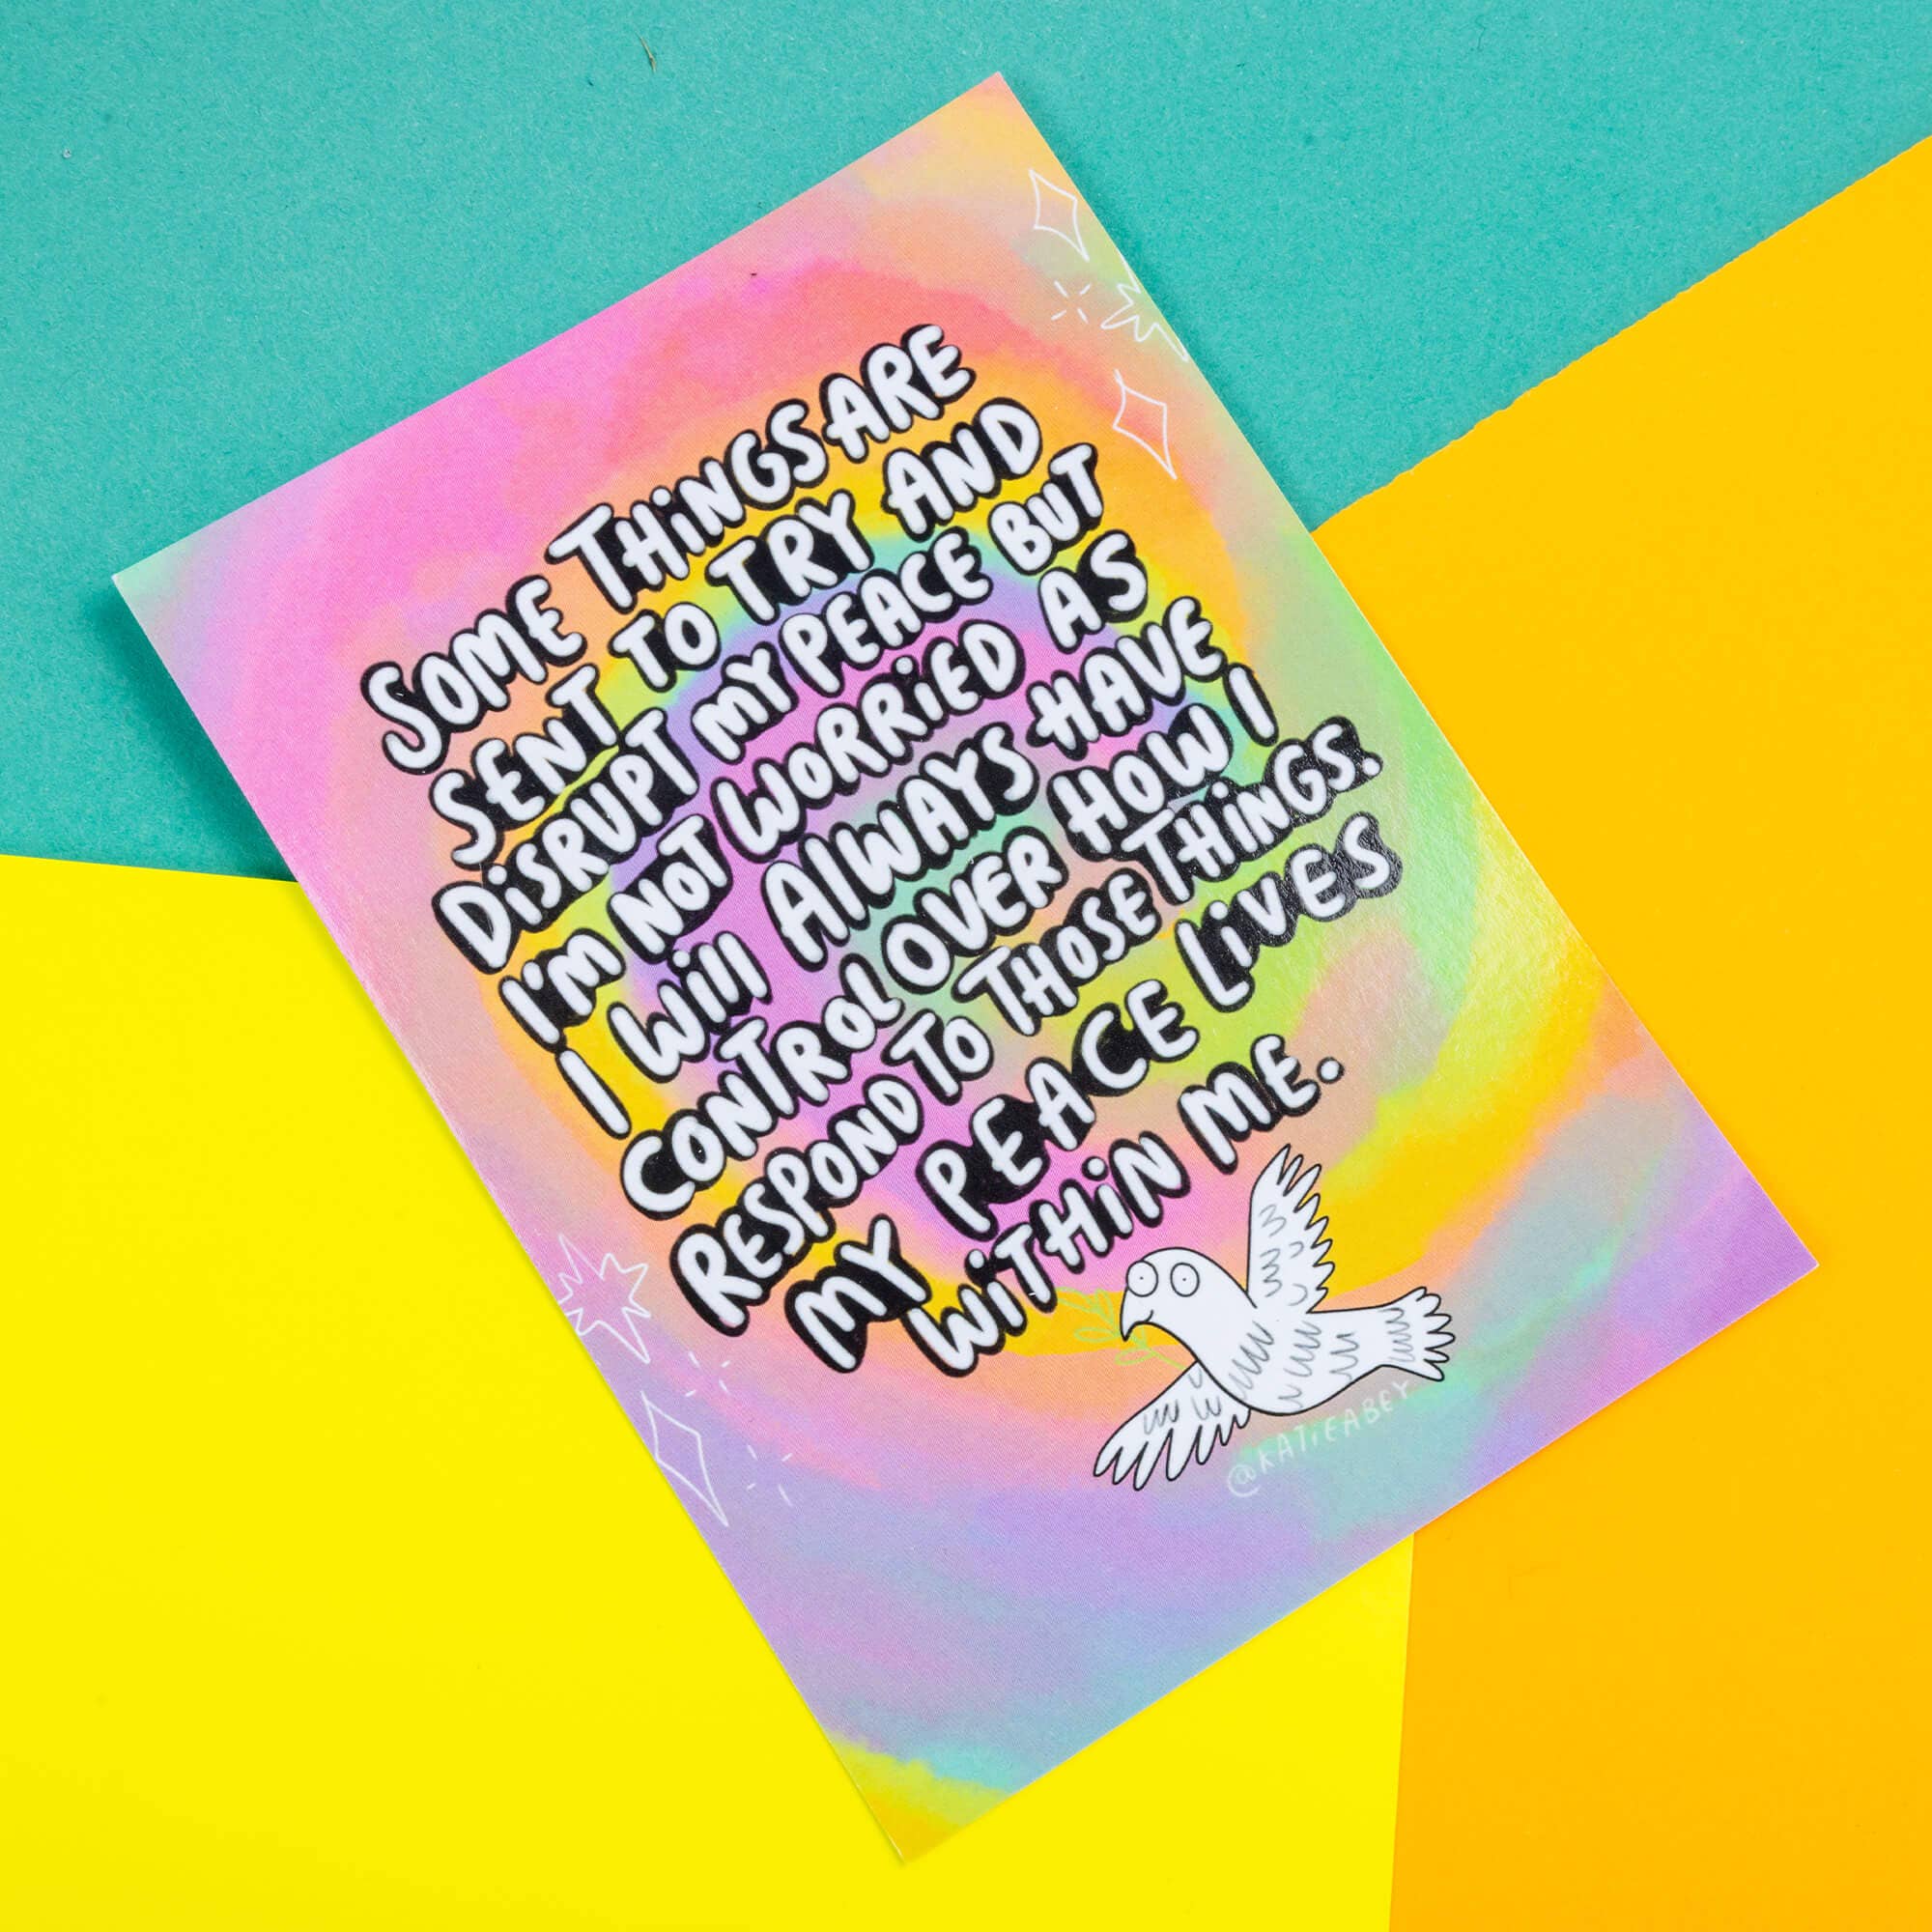 SOME THiNGS ARE
SENT TO TRY AND
DiSRUPT MY PEACE BUT
I'M NOT WORRiED AS
I Will AlWAYS HAVE
CONTROL OVER HOW I
RESPOND TO THOSE THiNGS.
MY PEACE LiVES
WiTHiN ME.
@KATiEABEY